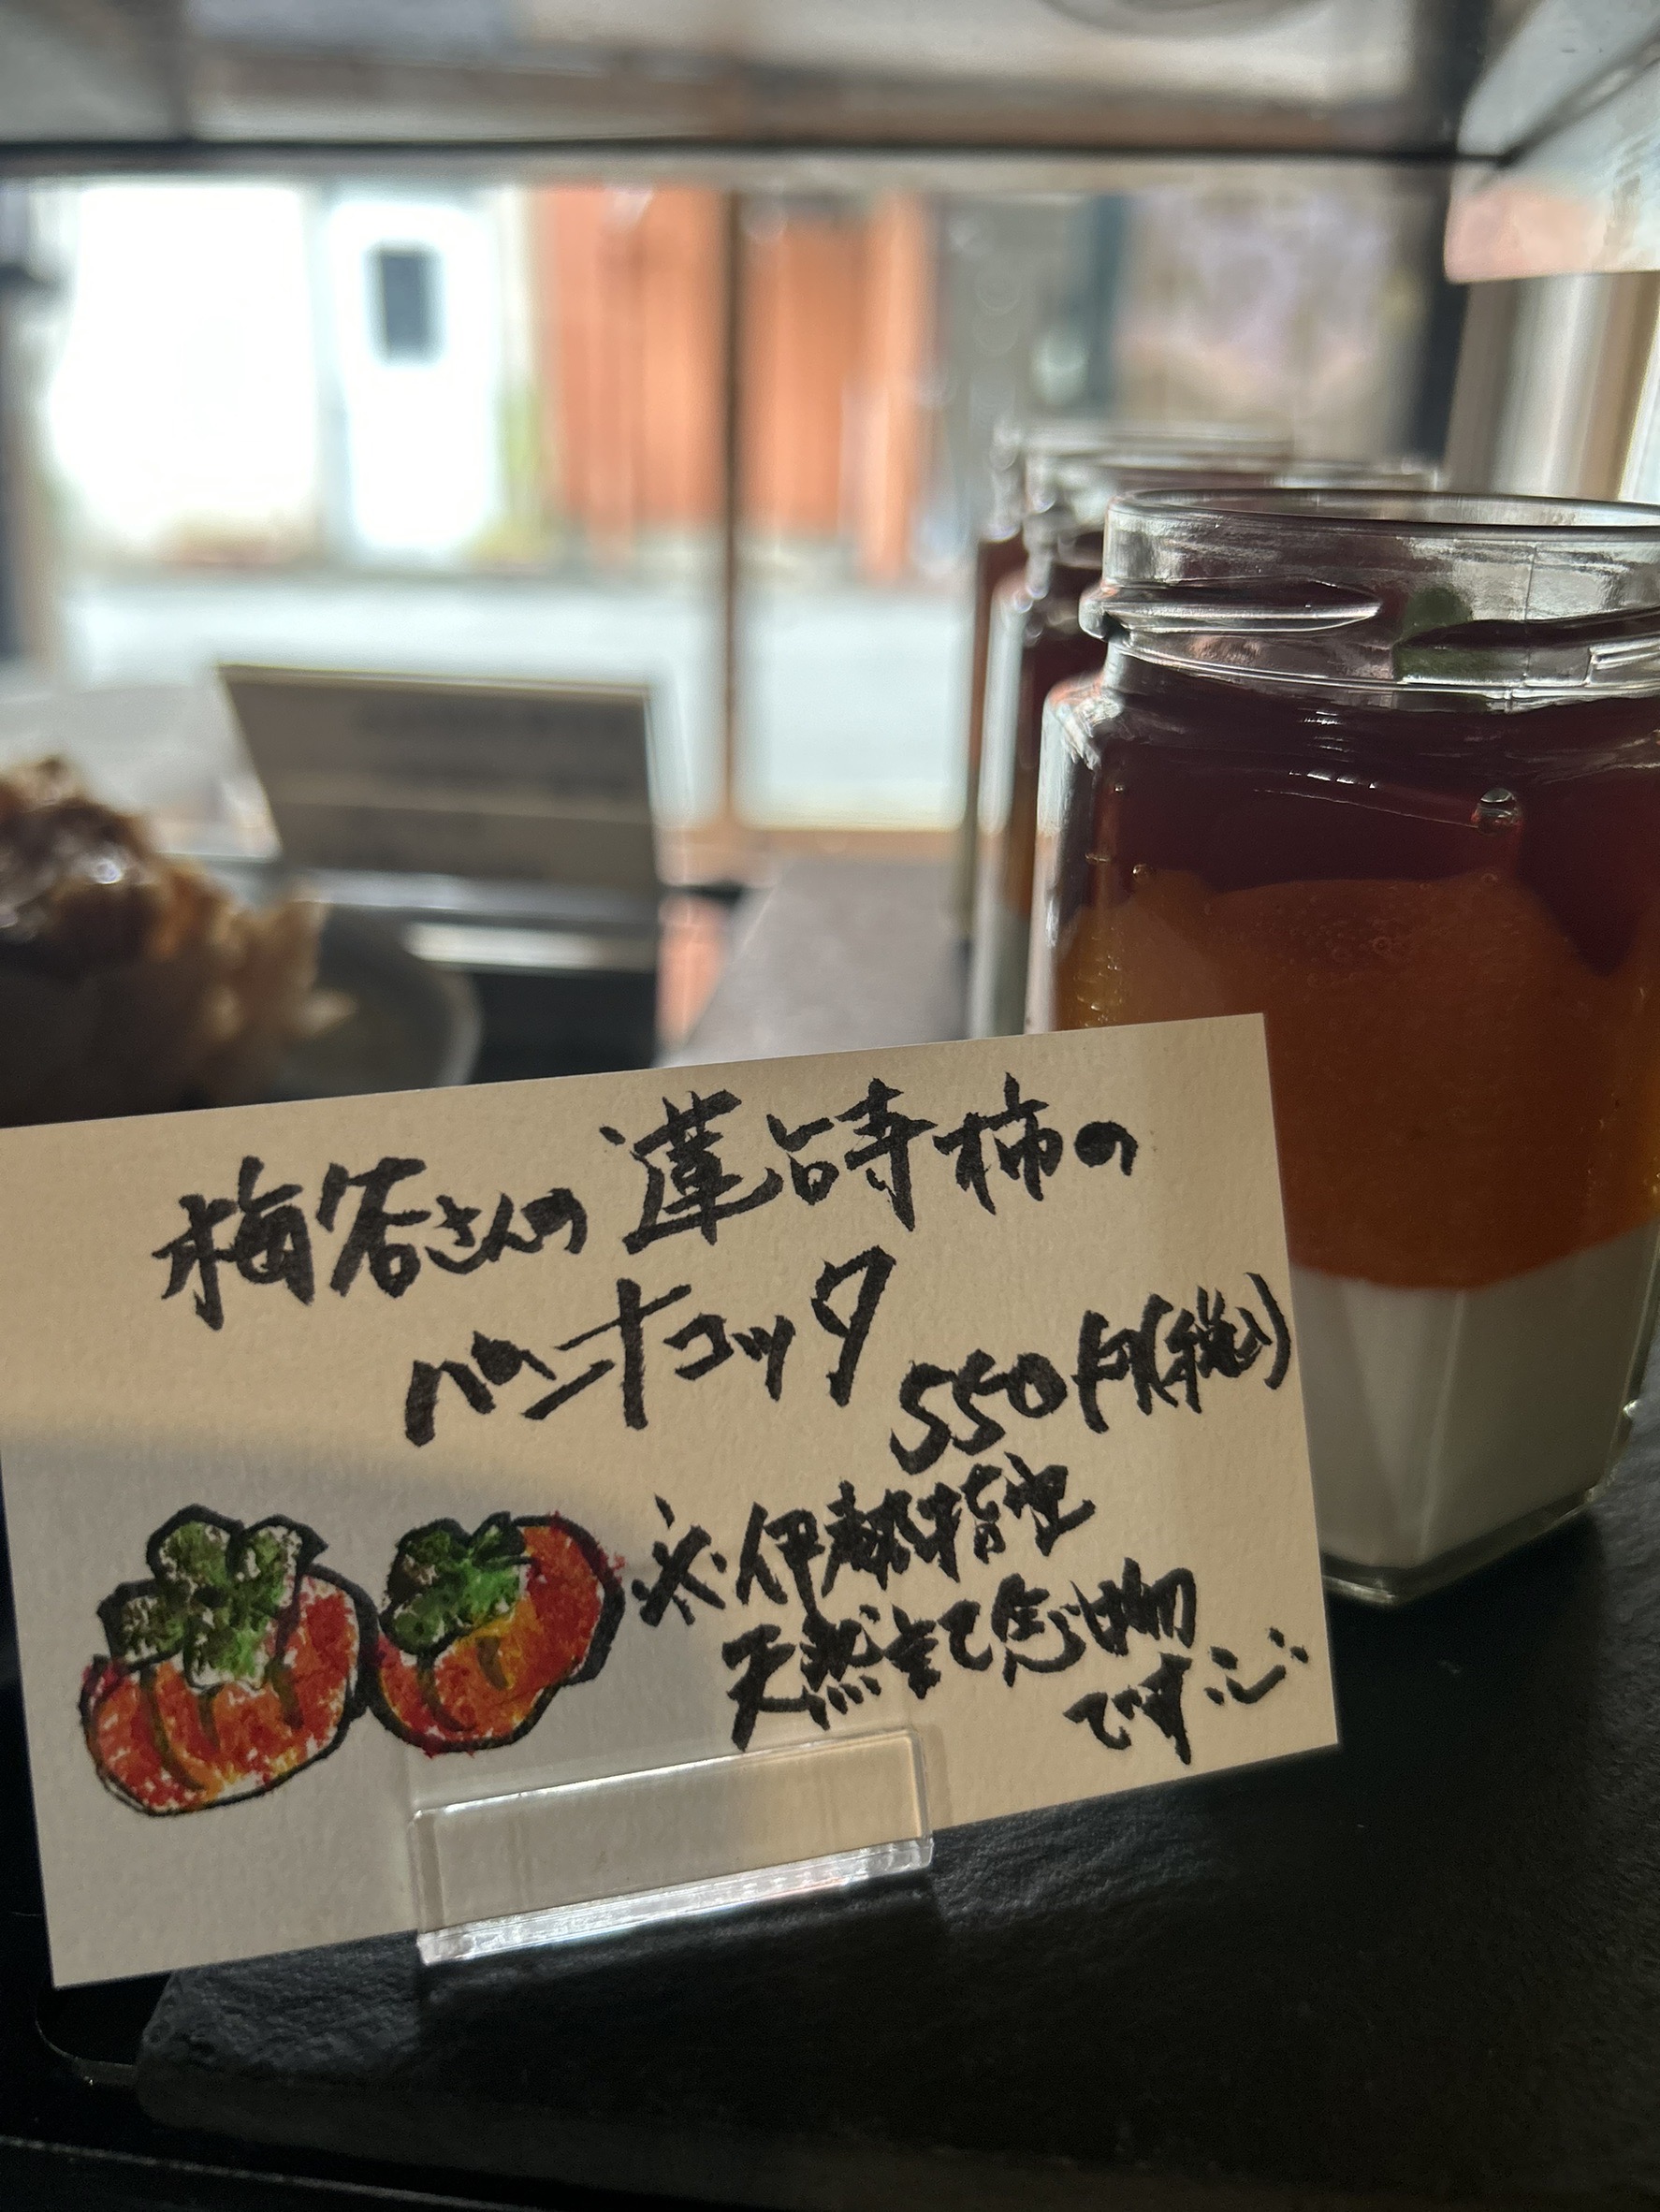 梅谷さんの蓮台寺柿の
パンナコッタ
550円(税込)
※伊勢指定
天然記念物
です